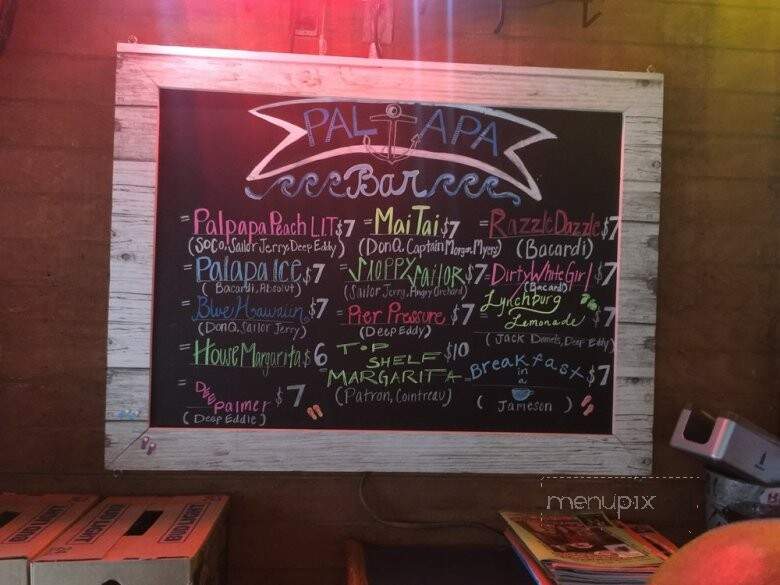 PALAPA
Bar
= Palpapa Peach L.I.T $7
(SoCo, Sailor Jerry, Deep Eddy)
= Palapa Ice $7
(Bacardi, Absolut)
= Blue Hawaiin $7
(Don Q, Sailor Jerry)
= House Margarita $6
= Dew Palmer $7
(Deep Eddie)
= Mai Tai $7
(Don Q, Captain Morgan, Myers)
= Sloppy Sailor $7
(Sailor Jerry, Angry Orchard)
= Pier Pressure $7
(Deep Eddy)
= TOP SHELF $10
MARGARITA
(Patron, Cointreau)
= Razzle Dazzle $7
(Bacardi)
= Dirty White Girl $7
(Bacardi)
Lynchburg
= Lemonade $7
(JACK Daniels, Deep Eddy)
= Breakfast $7
in
a
(Jameson)
menupix